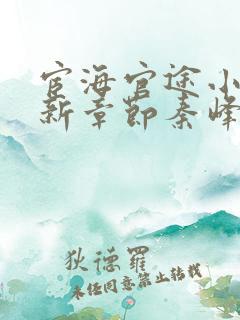 宦海官途小
新章节秦峰
狄德罗
未经同意禁止转载